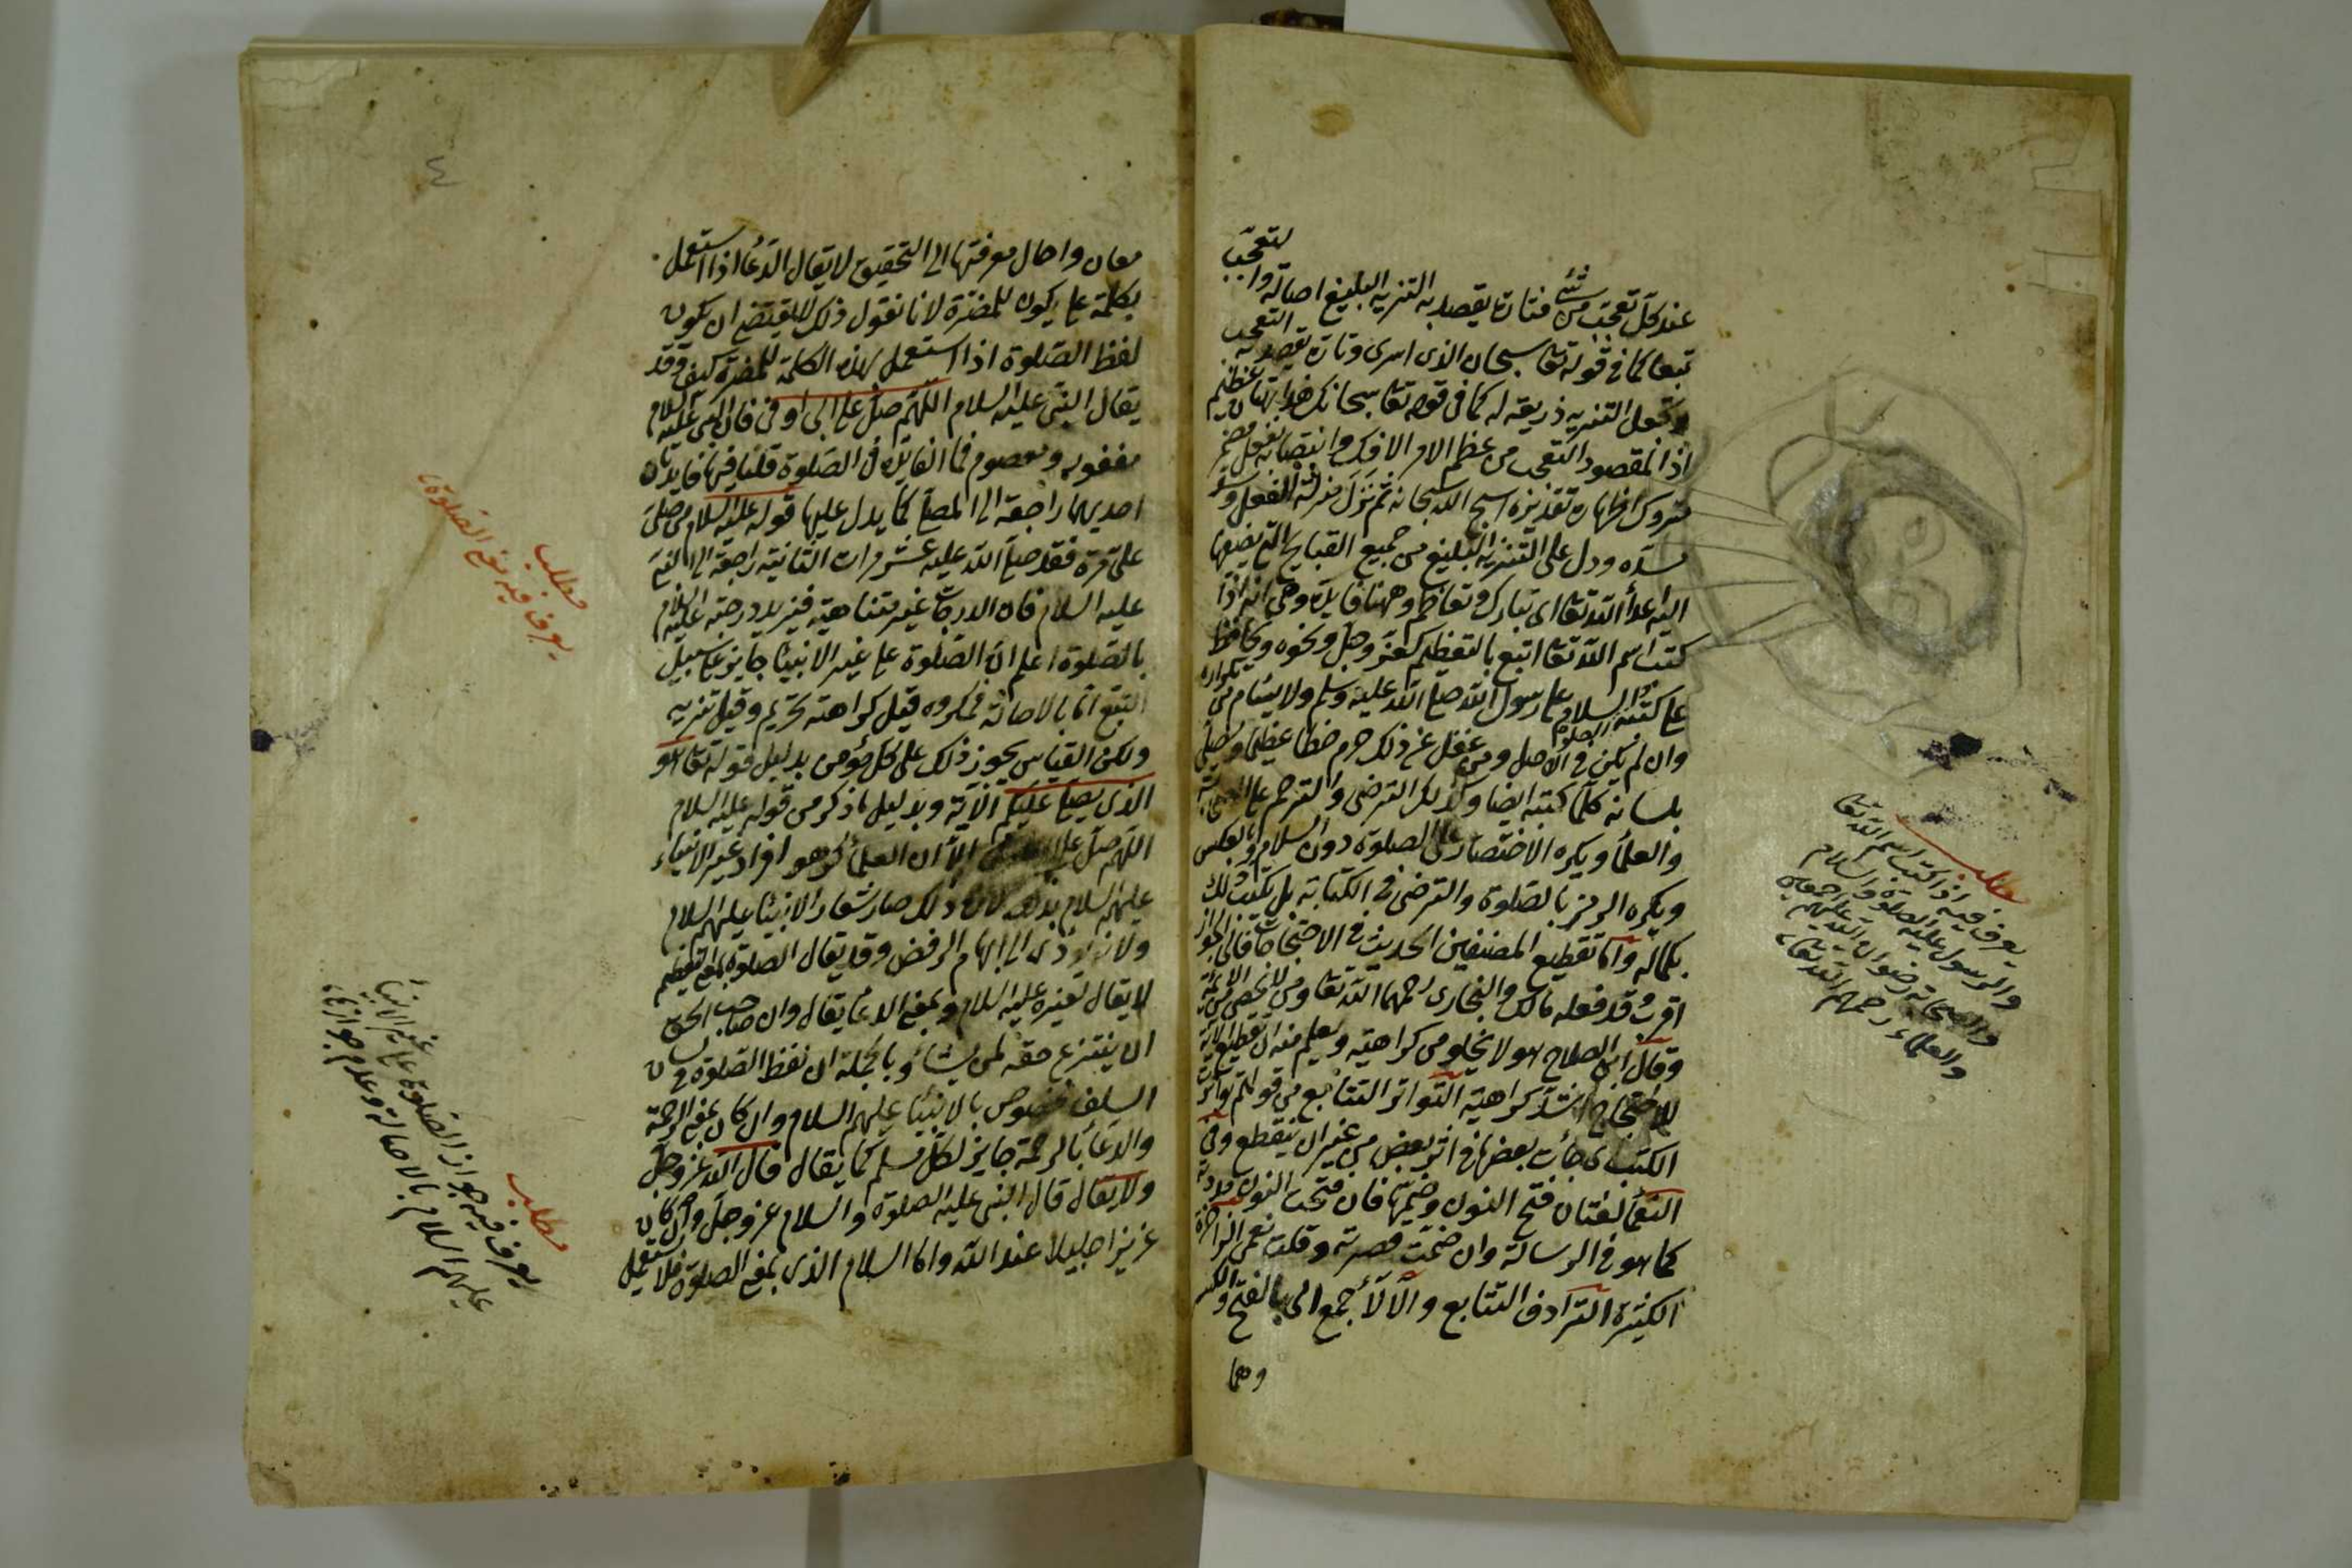 عند كل تعجب من شئ فتارة يقصد به التنزيه البليغ اصالة والتعجب
تبعا كما في قوله تعا سبحان الذى اسرى وتارة يقصد به التعجب
ويجعل التنزيه ذريعة له كما فى قوله تعا سبحانك هذا بهتان عظيم
اذ المقصود التعجب من عظم الامر الافك وانتصابه بفعل مضمر
متروك اظهاره تقديره اسبح الله سبحانه ثم نزل منزلة الفعل وسد
مسده ودل على التنزيه البليغ من جميع القبايح التى يضيفها
اليه اعداء الله تعا اى تبارك وتعاظم وههنا فايدة وهى انه اذا
كتب اسم الله تعا اتبع بالتعظيم كعز وجل ونحوه ويحافظ
على كتبة الصلوة والسلام على رسول الله صلى الله عليه وسلم ولا يسأم من تكراره
وان لم يكن فى الاصل ومن غفل عن ذلك حرم حظا عظيما ويصلى
بلسانه كلما كتبه ايضا وكذلك الترضى والترحم على الصحابة
والعلمأ ويكره الاختصار على الصلوة دون السلام وبالعكس
ويكره الرمز بالصلوة والترضى فى الكتابة بل يكتب ذلك
بكماله واما تقطيع المصنفين الحديث فى الاحتجاجات فالى الجواز
اقرب وقد فعله مالك والبخارى رحمهما الله تعا ومن لا يحصى من الائمة
وقال ابن الصلاح هو لا يخلو من كراهية ويعلم منه ان تقطيع الآية
للاحتجاج اشد كراهية التواتر التتابع من قولهم تواتر
الكتب اى جأت بعضها فى اثر بعض من غير ان ينقطع وفى
النعمأ لغتان فتح النون وضمها فان فتحت النون مددته
كما هو فى الرسالة وان ضمت قصرت وقلت نعمى الزاخرة
الكثيرة الترادف التتابع والآلأ جمع الى بالفتح والكسر
وهما
مطلب
يعرف فيه اذا كتب اسم الله تعا
والرسول عليه الصلوة والسلام
والصحابة رضوان الله عليهم اجمعين
والعلماء رحمهم الله تعا
٤
معان واحال معرفتها الى التحقيق لا يقال الدعأ اذا استعمل
بكلمة على يكون للمضرة لانا نقول ذلك لا يقتضى ان يكون
لفظ الصلوة اذا استعمل بهذه الكلمة للمضرة كيف وقد
يقال النبى عليه السلام اللهم صل على ابى اوفى فان النبى عليه السلام
مغفور ومعصوم فما الفايدة فى الصلوة قلنا فيها فايدتان
احديهما راجعة الى المصلى كما يدل عليها قوله عليه السلام من صلى
على مرة فقد صلى الله عليه عشر مرات الثانية راجعة الى النبى
عليه السلام فان الدرجات غير متناهية فيزيد درجته عليه السلام
بالصلوة اعلم ان الصلوة على غير الانبيأ جايز على سبيل
التبع اما بالاصالة فمكروه قيل كراهة تحريم وقيل تنزيه
ولكن القياس يجوز ذلك على كل مؤمن بدليل قوله تعا هو
الذى يصلى عليكم الآية وبدليل ما ذكر من قوله عليه السلام
اللهم صل على الا ان العلمأ كرهو افراد غير الانبياء
عليهم السلام بذلك لان ذلك صار شعار الانبيأ عليهم السلام
ولانه يؤدى الى ابهام الرفض وقد يقال الصلوة بمعنى التعظيم
لا يقال لغيره عليه السلام وبمعنى الدعأ يقال وان صاحب الحق
ان ينتزع حقه لمن يشأ وبالجملة ان لفظ الصلوة فى لسان
السلف مخصوص بالانبيأ عليهم السلام وان كان بمعنى الرحمة
والدعأ بالرحمة جايز لكل مسلم كما يقال قال الله عز وجل
ولا يقال قال النبى عليه الصلوة والسلام عز وجل وان كان
عزيزا جليلا عند الله واما السلام الذى بمعنى الصلوة فلا يستعمل
مطلب
يعرف فيه نفع الصلوة
مطلب
يعرف فيه جواز الصلوة على غير الانبيأ
عليهم السلام بالاصالة وعدم جوازها